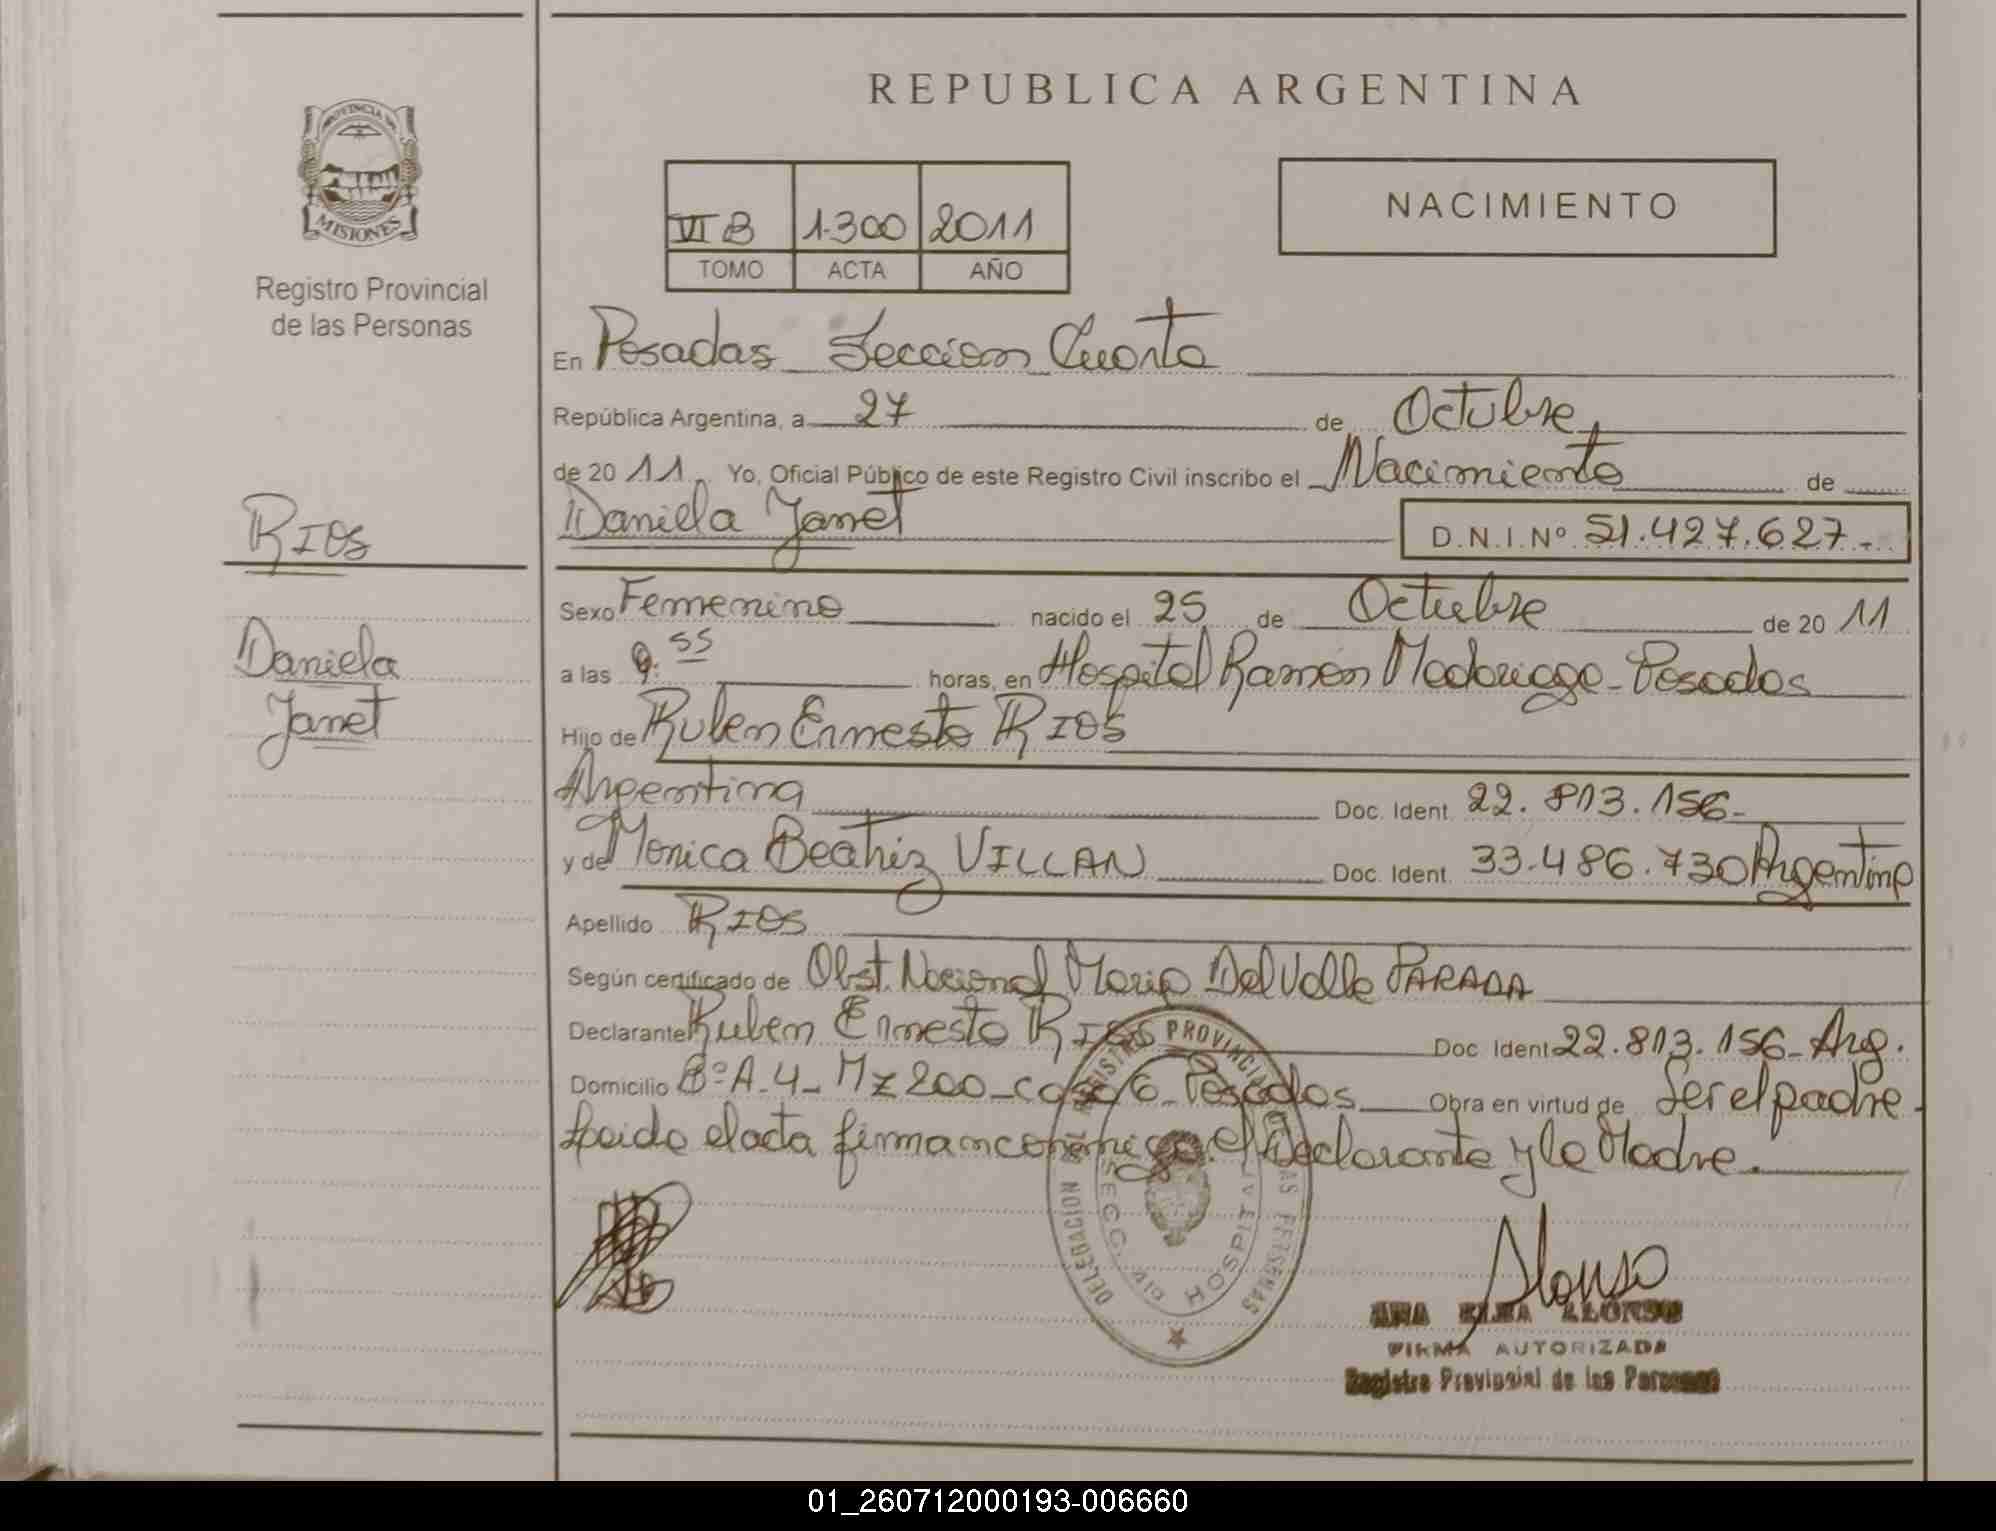 REPUBLICA ARGENTINA
PROVINCIA DE
MISIONES
Registro Provincial
de las Personas
VI B 1.300 2011
TOMO ACTA AÑO
NACIMIENTO
En Posadas Seccion Cuarta
República Argentina, a 27 de Octubre
de 20 11. Yo, Oficial Público de este Registro Civil inscribo el Nacimiento de
Daniela Janet
D.N.I.Nº 51.427.627.-
RIOS
Daniela
Janet
Sexo Femenino nacido el 25 de Octubre de 20 11
a las 9.55 horas, en Hospital Ramón Madariaga - Posadas
Hijo de Ruben Ernesto RIOS
Argentina Doc. Ident. 22.813.156-
y de Monica Beatriz VILLAN Doc. Ident. 33.486.730 Argentina
Apellido RIOS
Según certificado de Obst. Nacional Maria Del Valle PARADA
Declarante Ruben Ernesto RIOS Doc. Ident. 22.813.156- Arg.
Domicilio Bº A-4- Mz 200 - casa 6 - Posadas Obra en virtud de Ser el padre.
Leida el acta firman conmigo el Declarante y la Madre.
DELEGACION DEL REGISTRO PROVINCIAL DE LAS PERSONAS
SECC. 4ta HOSPITAL
Alonso
ANA ELBA ALONSO
FIRMA AUTORIZADA
Registro Provincial de las Personas
01_260712000193-006660